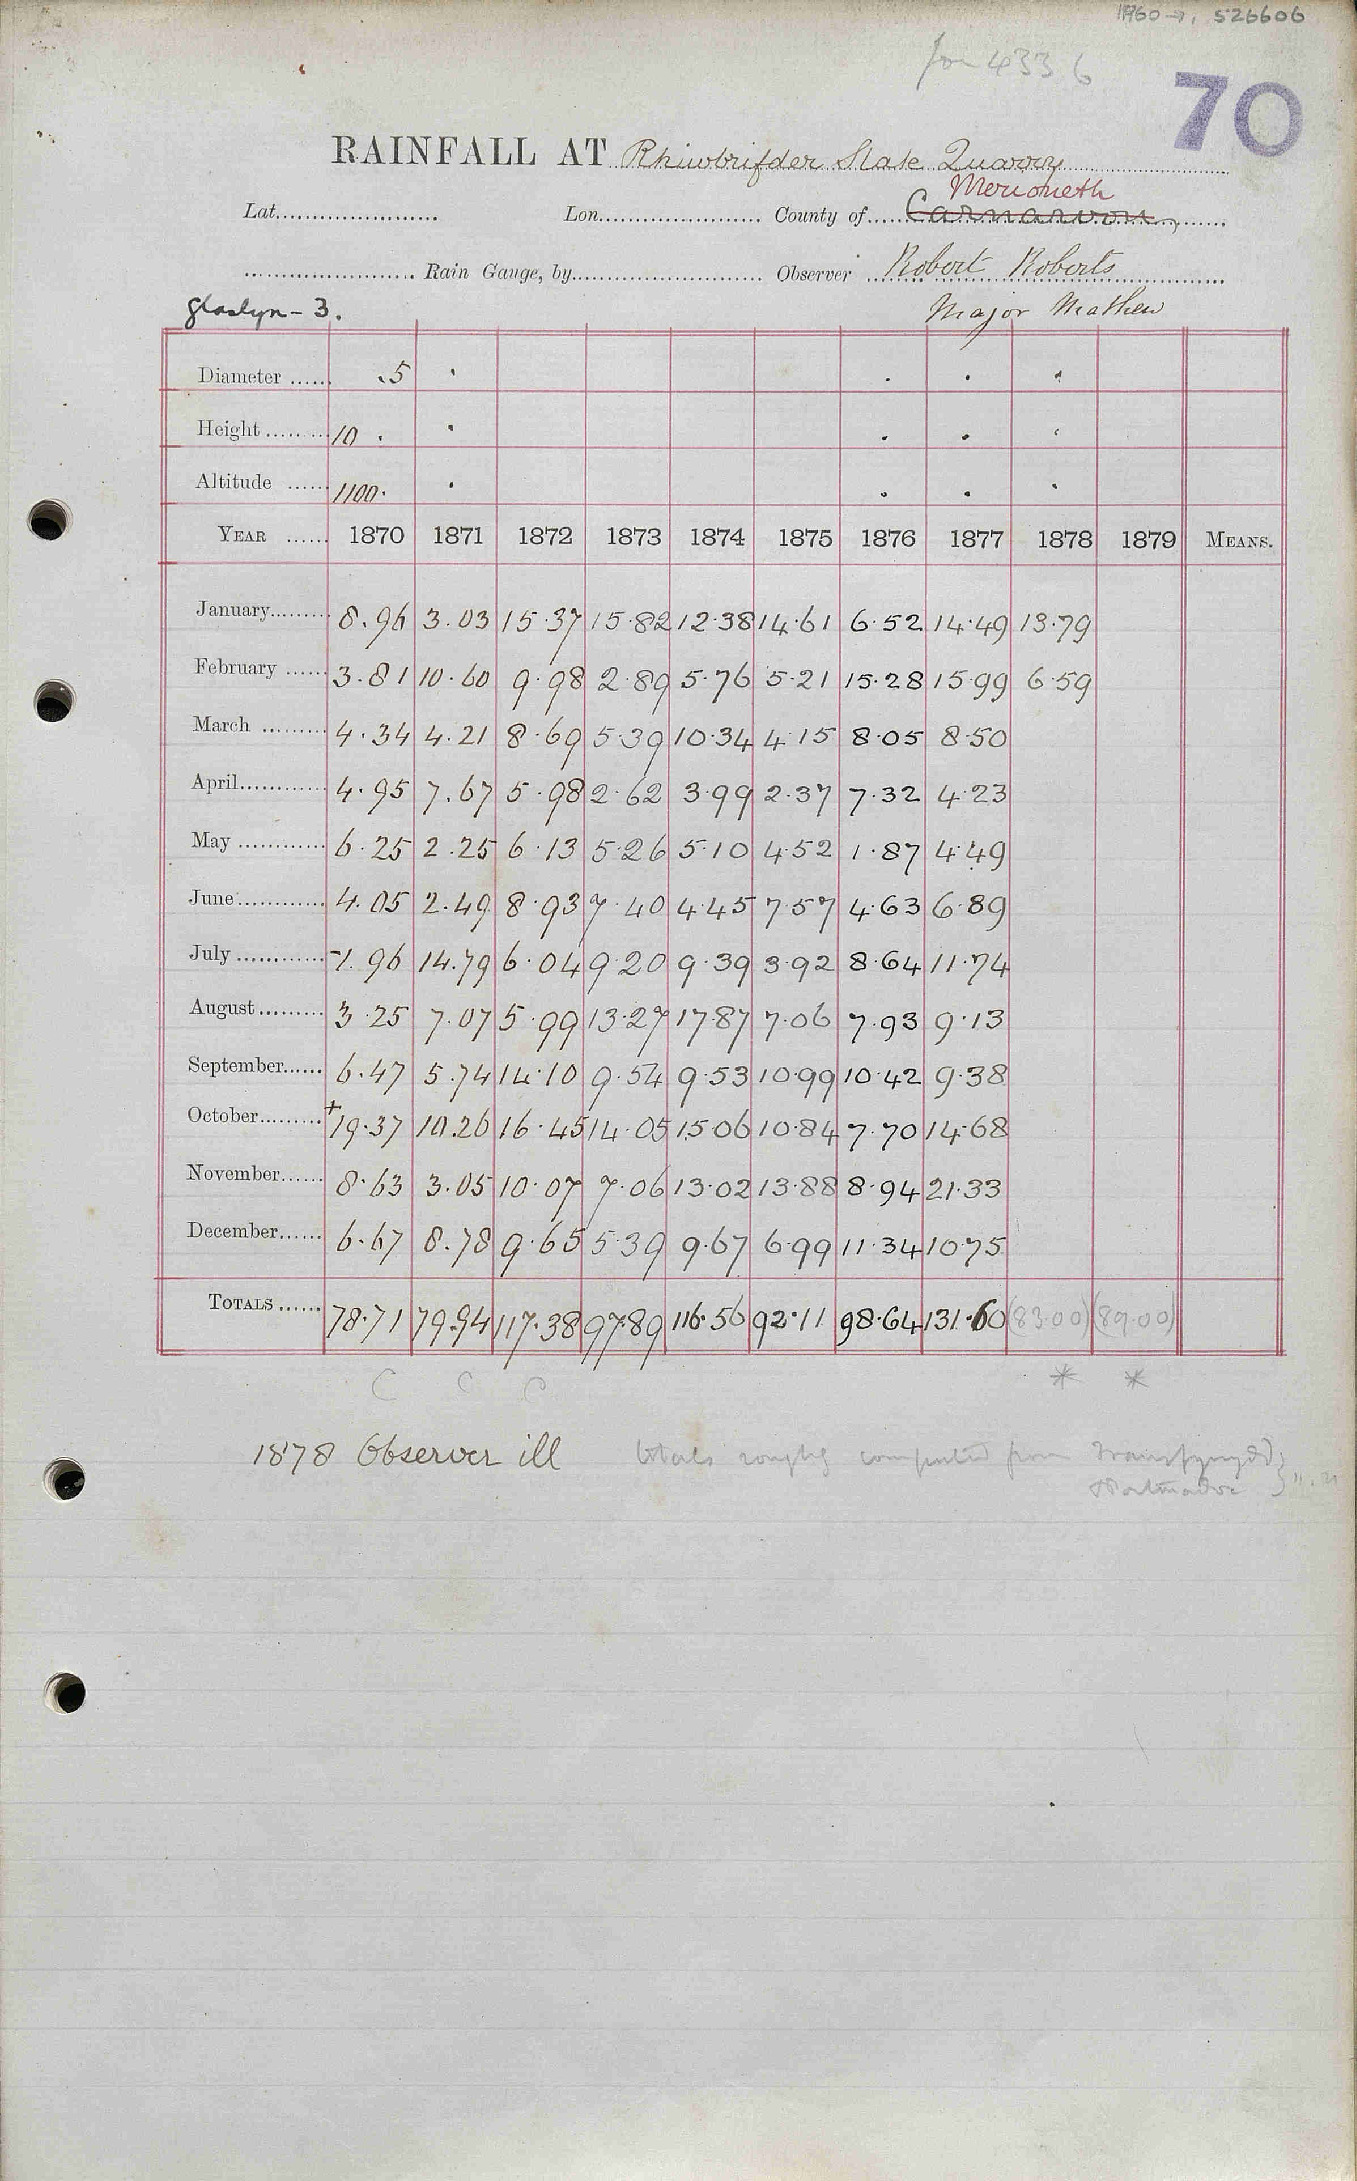 1960 → 526606
for 433 6
70
RAINFALL AT Rhiwbrifder Slate Quarry
Merioneth
Lat. Lon. County of Carnarvon
Rain Gauge, by Observer Robert Roberts
Glaslyn - 3. Major Mathew
Diameter .5
Height 10
Altitude 1100
YEAR 1870 1871 1872 1873 1874 1875 1876 1877 1878 1879 MEANS.
January 8.96 3.03 15.37 15.82 12.38 14.61 6.52 14.49 13.79
February 3.81 10.60 9.98 2.89 5.76 5.21 15.28 15.99 6.59
March 4.34 4.21 8.69 5.39 10.34 4.15 8.05 8.50
April 4.95 7.67 5.98 2.62 3.99 2.37 7.32 4.23
May 6.25 2.25 6.13 5.26 5.10 4.52 1.87 4.49
June 4.05 2.49 8.93 7.40 4.45 7.57 4.63 6.89
July -1.96 14.79 6.04 9.20 9.39 3.92 8.64 11.74
August 3.25 7.07 5.99 13.27 17.87 7.06 7.93 9.13
September 6.47 5.74 14.10 9.54 9.53 10.99 10.42 9.38
October +19.37 10.26 16.45 14.05 15.06 10.84 7.70 14.68
November 8.63 3.05 10.07 7.06 13.02 13.88 8.94 21.33
December 6.67 8.78 9.65 5.39 9.67 6.99 11.34 10.75
TOTALS 78.71 79.94 117.38 97.89 116.56 92.11 98.64 131.60 (83.00) (89.00)
C C C * *
1878 Observer ill totals roughly computed from Trawsfynydd
& Portmadoc